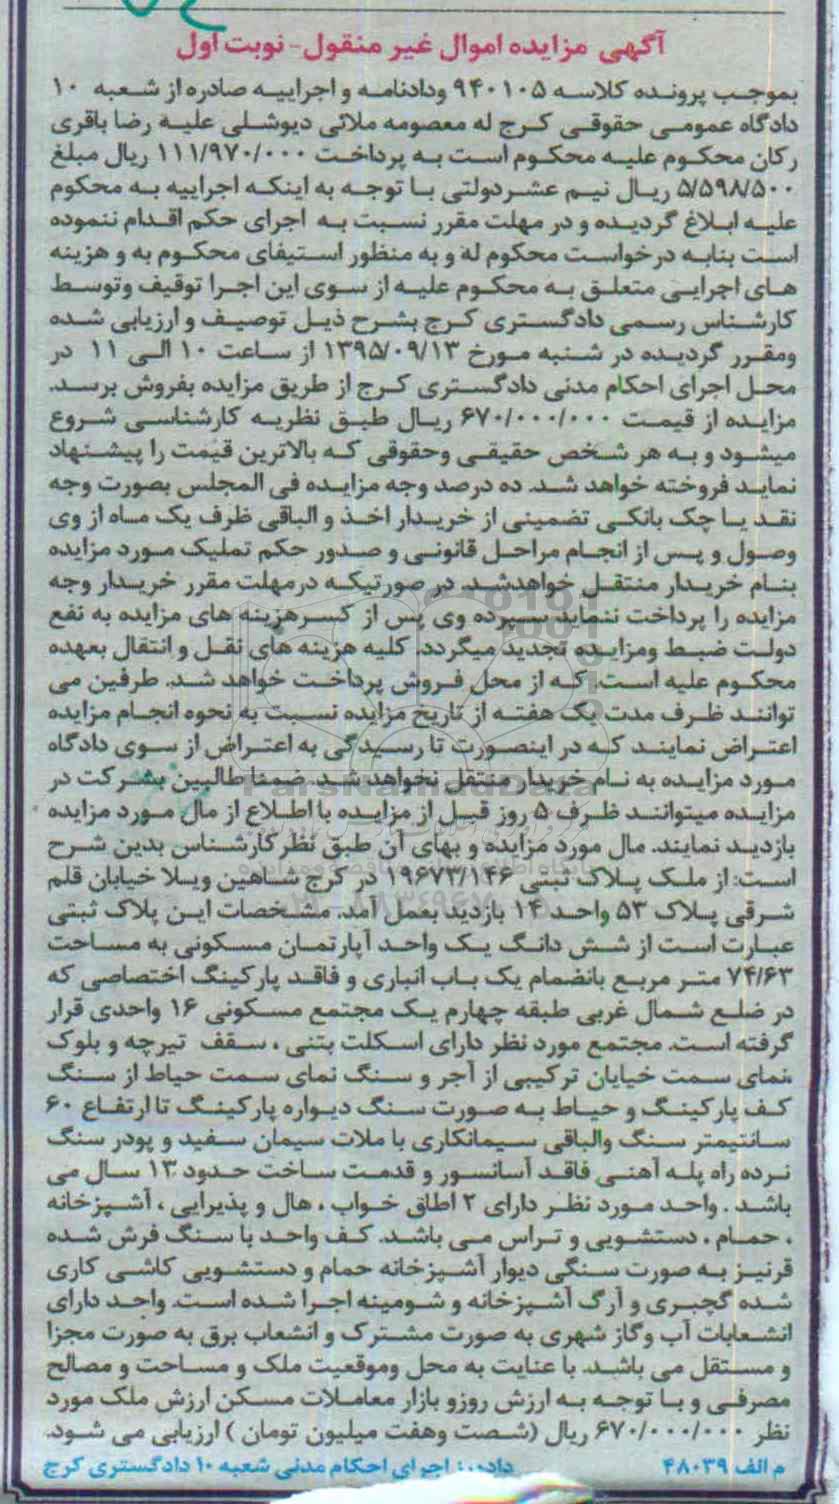 آگهی مزایده اموال غیر منقول - نوبت اول
بموجب پرونده کلاسه ۹۴۰۱۰۵ ودادنامه و اجراییه صادره از شعبه ۱۰
دادگاه عمومی حقوقی کرج له معصومه ملائی دیوشلی علیه رضا باقری
رکان محکوم علیه محکوم است به پرداخت ۱۱۱/۹۷۰/۰۰۰ ریال مبلغ
۵/۵۹۸/۵۰۰ ریال نیم عشر دولتی با توجه به اینکه اجراییه به محکوم
علیه ابلاغ گردیده و در مهلت مقرر نسبت به اجرای حکم اقدام ننموده
است بنابه درخواست محکوم له و به منظور استیفای محکوم به و هزینه
های اجرایی متعلق به محکوم علیه از سوی این اجرا توقیف وتوسط
کارشناس رسمی دادگستری کرج بشرح ذیل توصیف و ارزیابی شده
ومقرر گردیده در شنبه مورخ ۱۳۹۵/۰۹/۱۳ از ساعت ۱۰ الی ۱۱ در
محل اجرای احکام مدنی دادگستری کرج از طریق مزایده بفروش برسد.
مزایده از قیمت ۶۷۰/۰۰۰/۰۰۰ ریال طبق نظریه کارشناسی شروع
میشود و به هر شخص حقیقی وحقوقی که بالاترین قیمت را پیشنهاد
نماید فروخته خواهد شد. ده درصد وجه مزایده فی المجلس بصورت وجه
نقد یا چک بانکی تضمینی از خریدار اخذ و الباقی ظرف یک ماه از وی
وصول و پس از انجام مراحل قانونی و صدور حکم تملیک مورد مزایده
بنام خریدار منتقل خواهدشد. در صورتیکه درمهلت مقرر خریدار وجه
مزایده را پرداخت ننماید سپرده وی پس از کسرهزینه های مزایده به نفع
دولت ضبط ومزایده تجدید میگردد. کلیه هزینه های نقل و انتقال بعهده
محکوم علیه است. که از محل فروش پرداخت خواهد شد. طرفین می
توانند ظرف مدت یک هفته از تاریخ مزایده نسبت به نحوه انجام مزایده
اعتراض نمایند که در اینصورت تا رسیدگی به اعتراض از سوی دادگاه
مورد مزایده به نام خریدار منتقل نخواهد شد. ضمنا طالبین بشرکت در
مزایده میتوانند ظرف ۵ روز قبل از مزایده با اطلاع از مال مورد مزایده
بازدید نمایند. مال مورد مزایده و بهای آن طبق نظر کارشناس بدین شرح
است: از ملک پلاک ثبتی ۱۹۶۷۳/۱۴۶ در کرج شاهین ویلا خیابان قلم
شرقی پلاک ۵۳ واحد ۱۴ بازدید بعمل آمد. مشخصات این پلاک ثبتی
عبارت است از شش دانگ یک واحد آپارتمان مسکونی به مساحت
۷۴/۶۳ متر مربع بانضمام یک باب انباری و فاقد پارکینگ اختصاصی که
در ضلع شمال غربی طبقه چهارم یک مجتمع مسکونی ۱۶ واحدی قرار
گرفته است. مجتمع مورد نظر دارای اسکلت بتنی ، سقف تیرچه و بلوک
،نمای سمت خیابان ترکیبی از آجر و سنگ نمای سمت حیاط از سنگ
کف پارکینگ و حیاط به صورت سنگ دیواره پارکینگ تا ارتفاع ۶۰
سانتیمتر سنگ والباقی سیمانکاری با ملات سیمان سفید و پودر سنگ
نرده راه پله آهنی فاقد آسانسور و قدمت ساخت حدود ۱۳ سال می
باشد . واحد مورد نظر دارای ۲ اطاق خواب ، هال و پذیرایی ، آشپزخانه
، حمام ، دستشویی و تراس می باشد. کف واحد با سنگ فرش شده
قرنیز به صورت سنگی دیوار آشپزخانه حمام و دستشویی کاشی کاری
شده گچبری و آرک آشپزخانه و شومینه اجرا شده است. واحد دارای
انشعابات آب وگاز شهری به صورت مشترک و انشعاب برق به صورت مجزا
و مستقل می باشد. با عنایت به محل وموقعیت ملک و مساحت و مصالح
مصرفی و با توجه به ارزش روزو بازار معاملات مسکن ارزش ملک مورد
نظر ۶۷۰/۰۰۰/۰۰۰ ریال (شصت وهفت میلیون تومان ) ارزیابی می شود.
م الف ۴۸۰۳۹ دادورز اجرای احکام مدنی شعبه ۱۰ دادگستری کرج
ParsNamadData